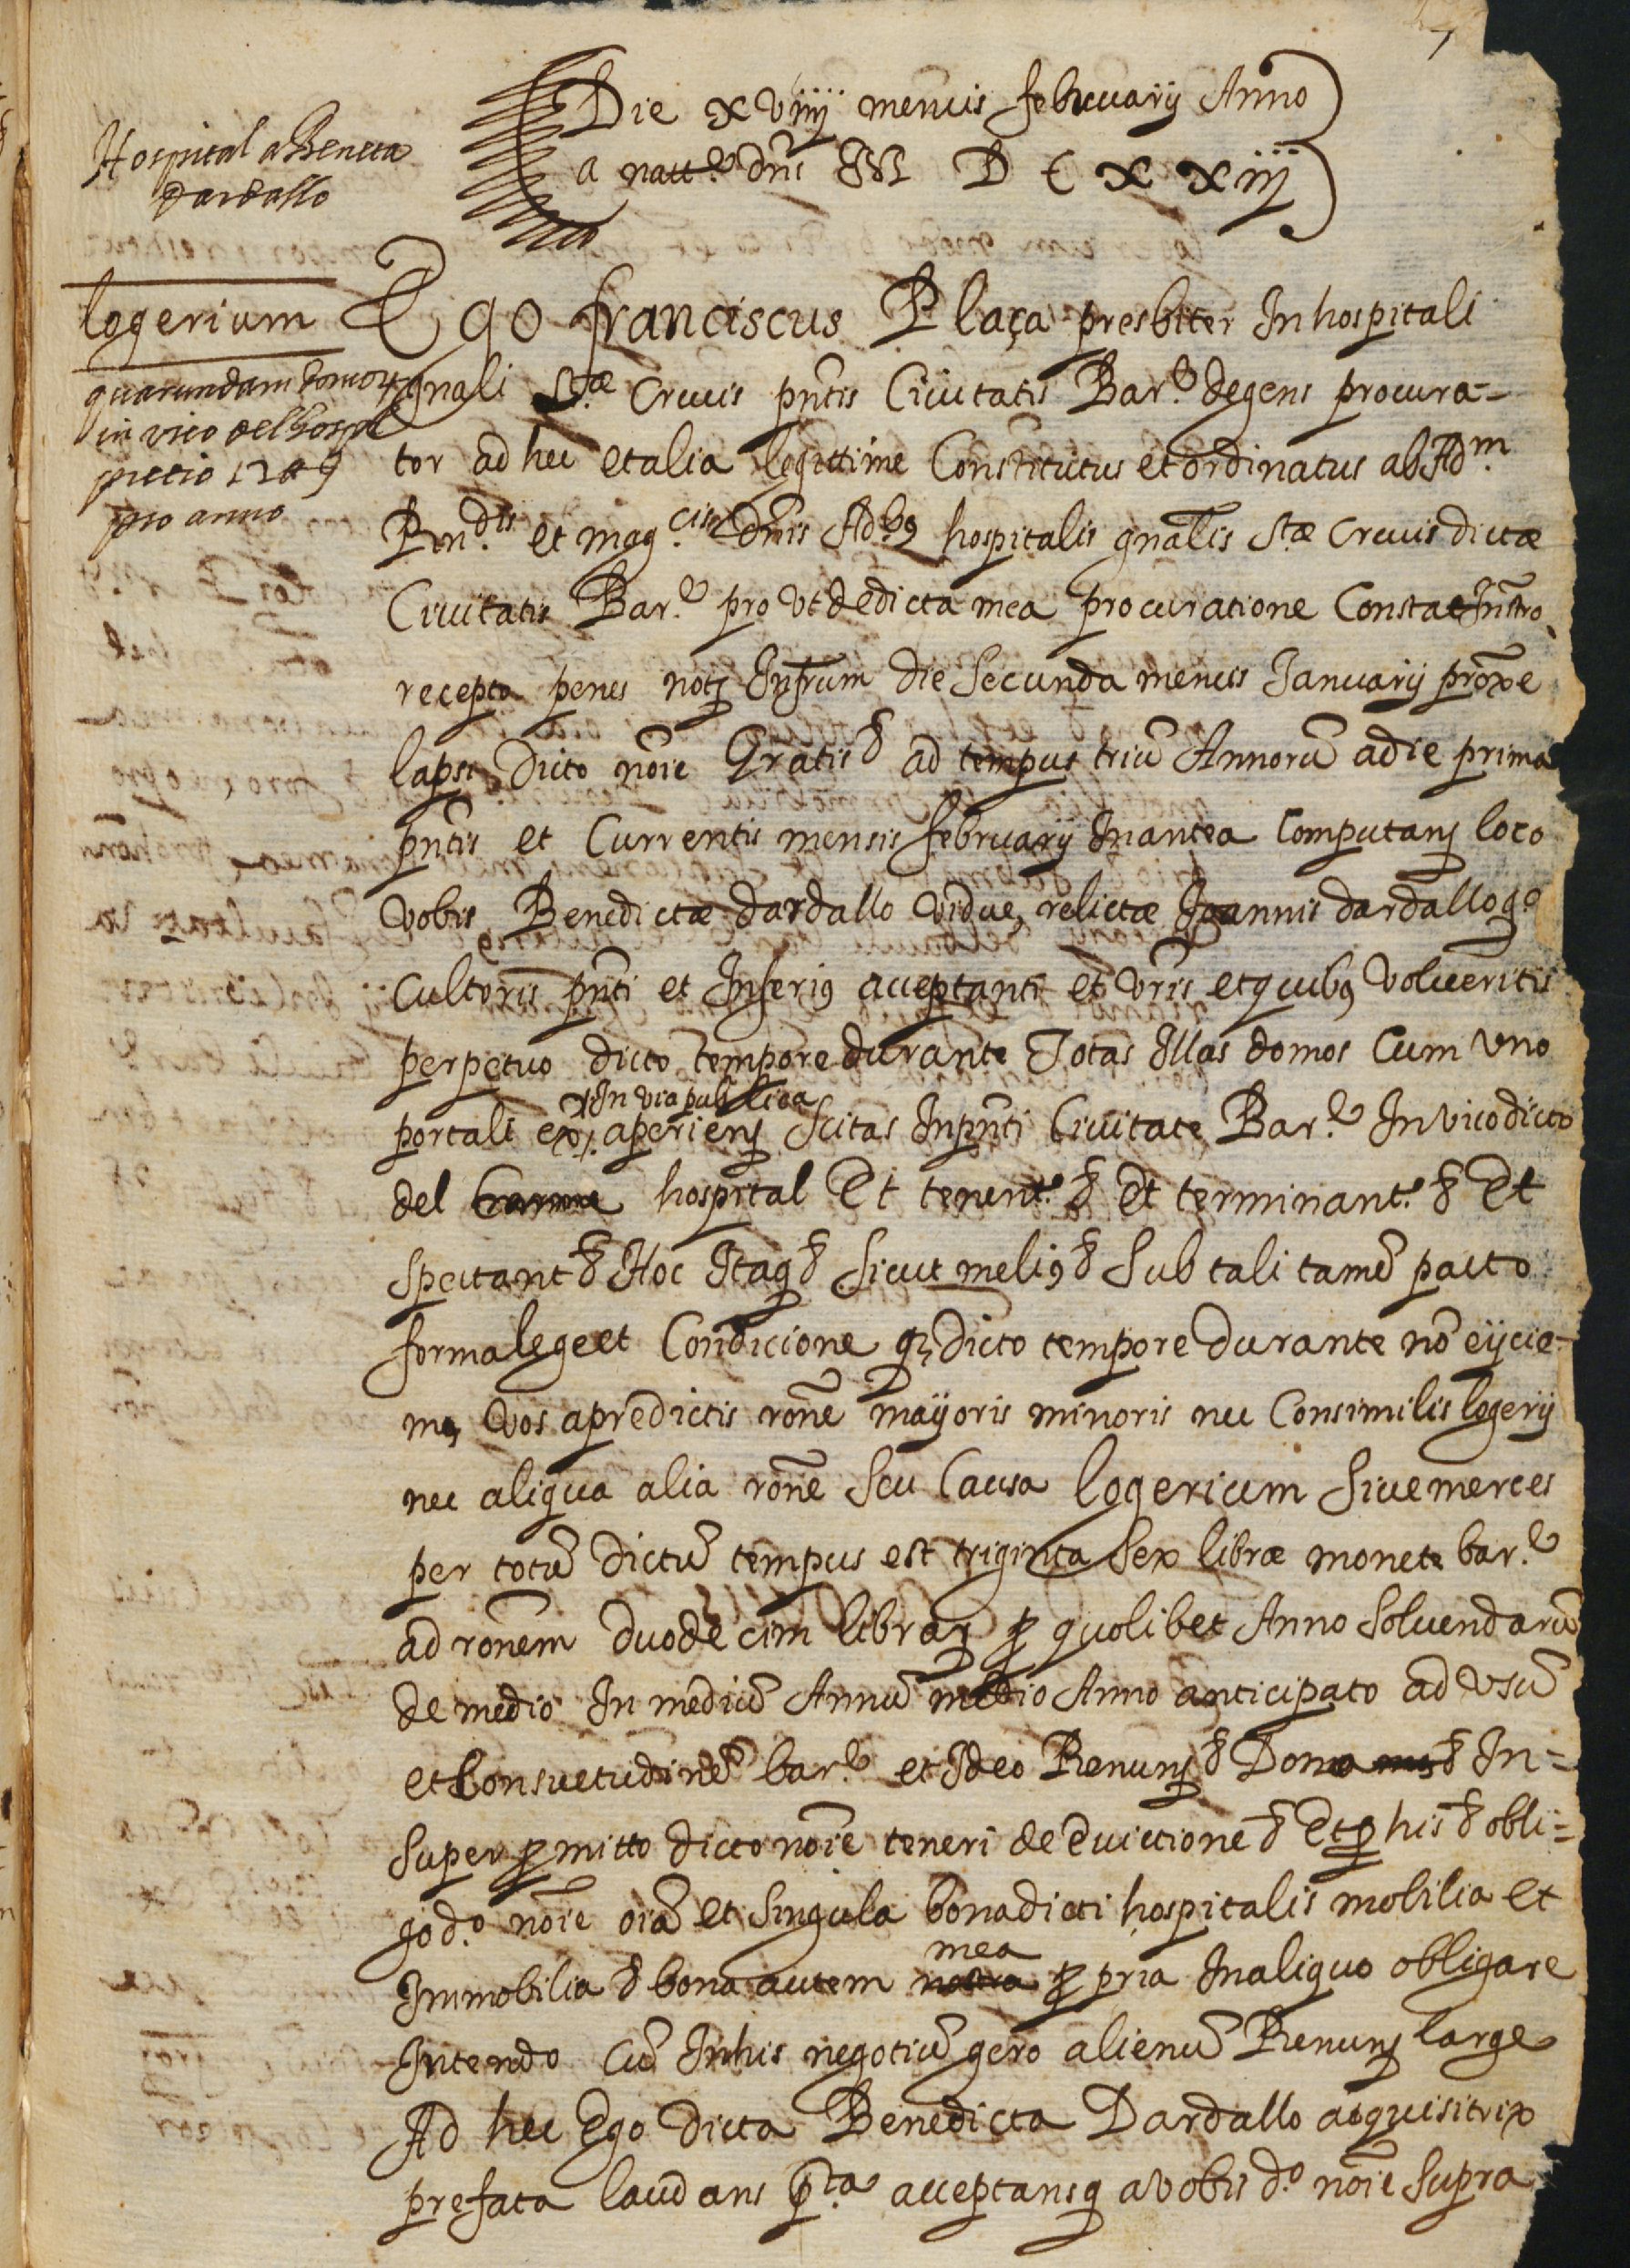 Die xviiij mensis februarij Anno
a natt.e dni M D C X X iiij
Hospital a Beneta
dardallo
logerium
quarundam domorum
in vico del hospl
pretio 12 ll 9
pro anno
Ego franciscus Plaça presbiter In hospitali
gnali S.tæ Crucis pntis Ciuitatis Bar.e degens procura=
tor ad hec et alia legittime Constitutus et ordinatus ab Adm.
Rn.dis et mag.cis dnis Ad.bus hospitalis gnalis S.tæ Crucis dictæ
Ciuitatis Bar.e pro vt de dicta mea procuratione Constat Instro
recepto penes notm Infrum die Secunda mensis Januarij proxe
lapsi, Dicto noie Gratis & ad tempus triu Annoru a die prima
pntis et Currentis mensis februarij In antea Computans loco
vobis Benedictæ dardallo vidue, relictæ Joannis dardallo q.o
Cultoris pnti et Inferius acceptanti et vris et quibus volueritis
perpetuo dicto tempore durante Totas Illas domos Cum vno
portali ex. aperiens Scitas In pnti Ciuitate Bar.e In vico dicto
In via publica
del hospital Et tenent.e & Et terminant.e & Et
Spectant & Hoc Itaq & Sicut melius & Sub tali tame pacto
forma lege et Condicione q dicto tempore durante no eijcie-
mus vos a predictis rone maijoris minoris nec Consimilis logerij
nec aliqua alia rone Seu Causa logerium Siue merces
per totu dictu tempus est triginta Sex libræ monete bar.e
ad ronem duodecim librar p quolibet Anno Soluendaru
de medio In mediu Annu medio Anno anticipato ad vsu
et Consuetudine bar.e et Ideo Renuns & Dono & In=
super pmitto dicto noie teneri de Euictione & Et p his & obli=
go d.o noie oia et Singula bona dicti hospitalis mobilia et
mea
Immobilia & bona autem nostra p pria In aliquo obligare
Intendo Cu In his negotiu gero alienu Renuns large
Ad hec Ego dicta Benedicta Dardallo acquisitrix
prefata laudans p.ta acceptansq a vobis d.o noie Supra